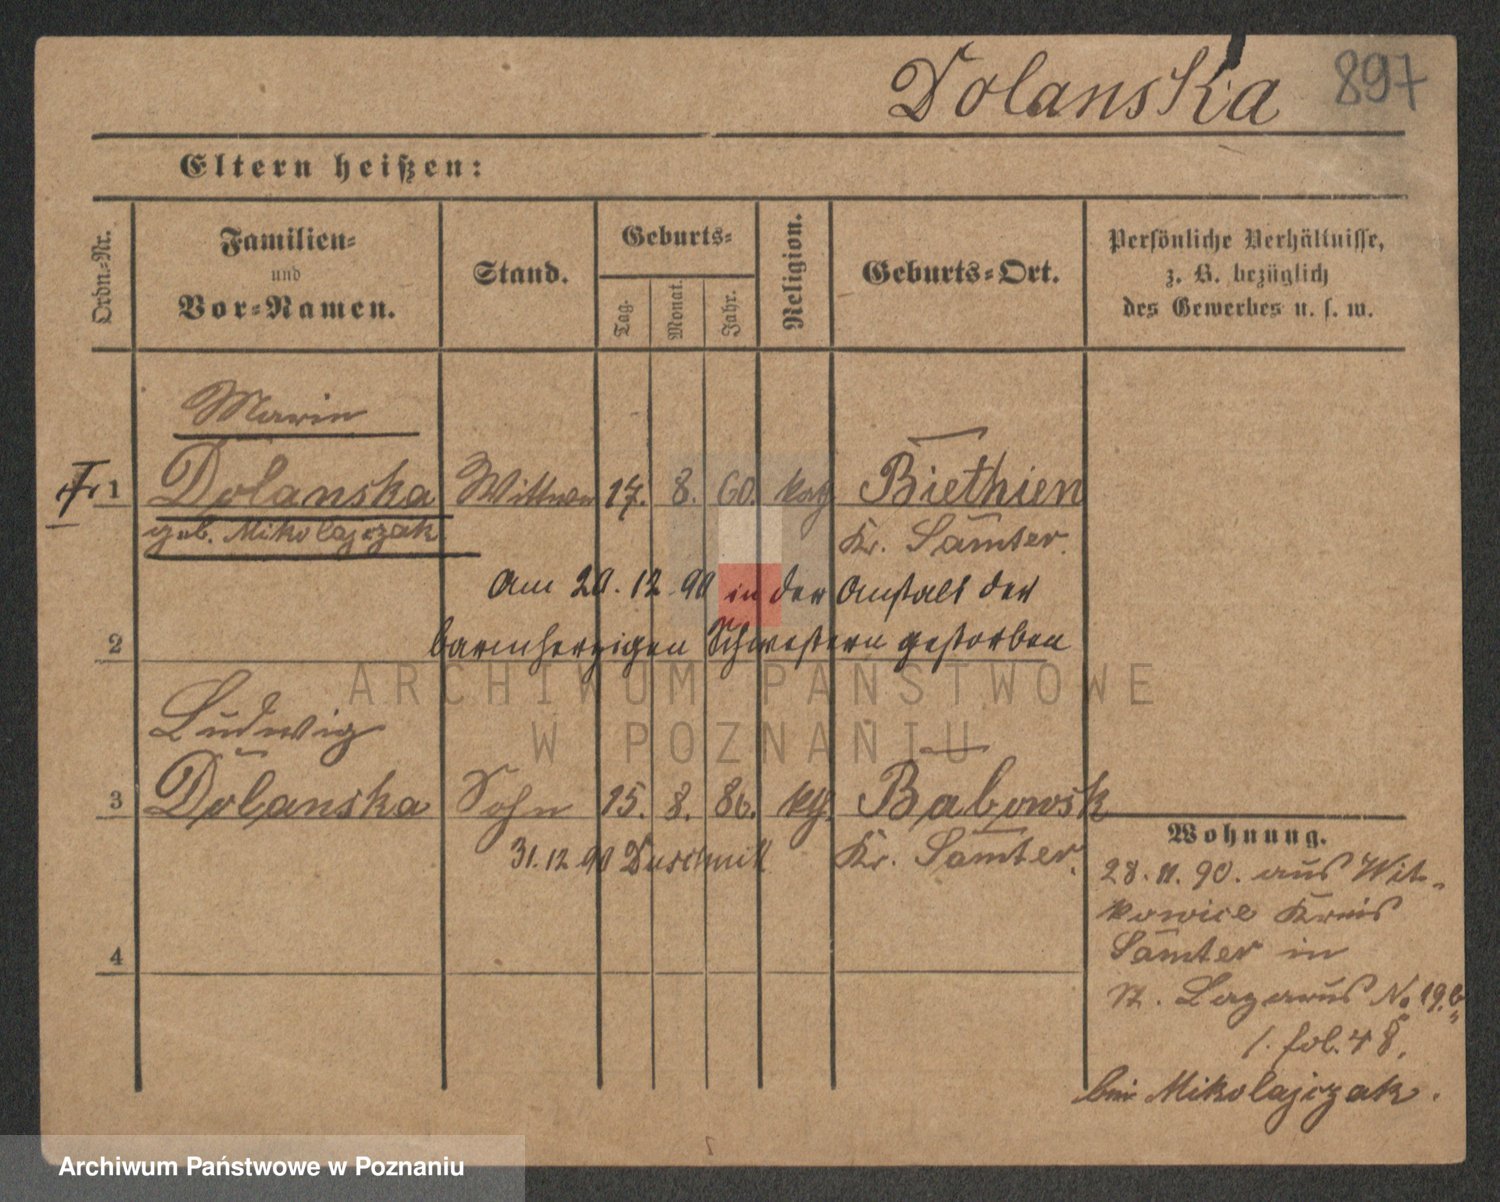 Dolanska 897
Eltern heißen:
Ordn.-Nr.
Familien-
und
Vor-Namen.
Stand.
Geburts-
Tag.
Monat.
Jahr.
Religion.
Geburts-Ort.
Persönliche Verhältnisse,
z. B. bezüglich
des Gewerbes u. s. w.
Marie
1 Dolanska Wittwe 17. 8. 60. kath Biethien
geb. Mikolajczak Kr. Samter.
Am 20. 12 90 in der Anstalt der
2 barmherzigen Schwestern gestorben
ARCHIWUM PAŃSTWOWE
W POZNANIU
Ludwig
3 Dolanska Sohn 15. 8. 86. kth. Babowsk
31. 12 90 Duschnik Kr. Samter.
4
Wohnung.
28. 11. 90. aus Wit-
kowice Kreis
Samter in
St. Lazarus No 19.b
1. fol. 48.
bei Mikolajczak.
Archiwum Państwowe w Poznaniu